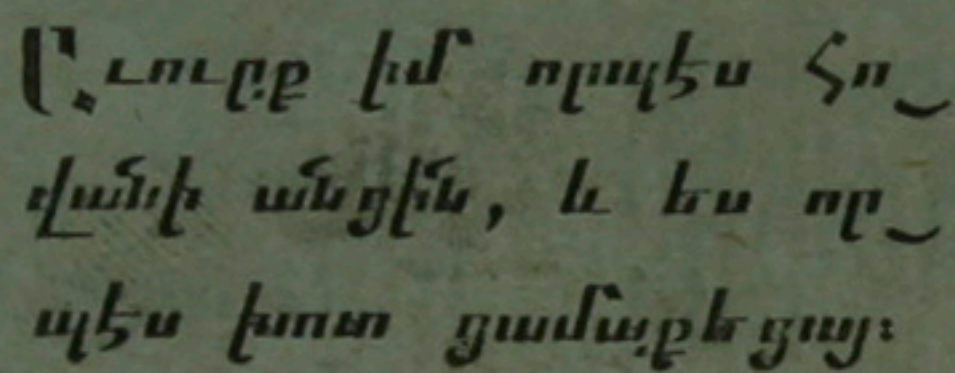 Աւուրք իմ որպէս Հո֊
վանի անցին, և ես որ֊
պէս խոտ ցամաքեցայ։